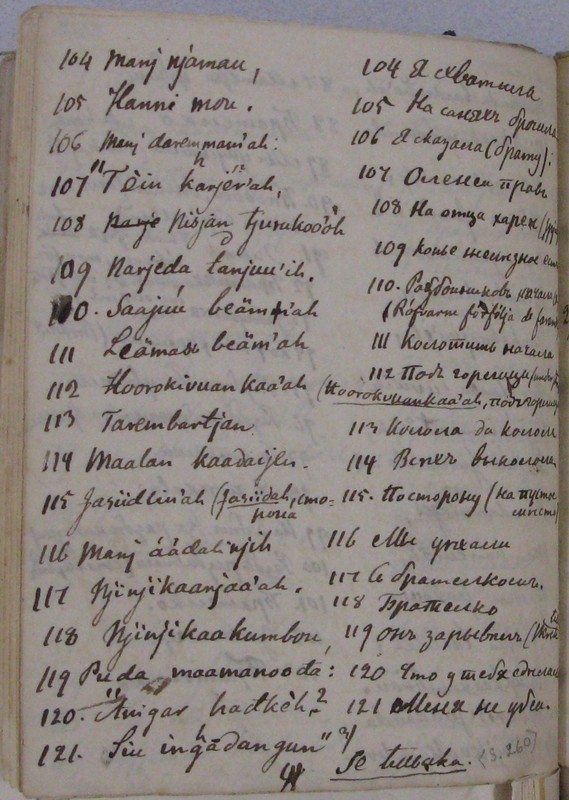 104 Manj njamau,
105 Hanni mou.
106 Manj daremman'ah:
107 "Tèin karjér'ah,
108 Nisjan tjurukoo'oh
109 Narjeda tanjuu'ih.
110. Saajuu beäm'ah
111 Leämasь beäm'ah
112 Hoorokivuan kaa'ah
113 Tarembartjan
114 Maalan kaadaijen.
115 Jasiidlin'ah (Jasiidah, сто-
рона
116 Manj áádalinjih
117 Njinjikaanjaa'ah.
118 Njinjikaakumbou,
119 Puda maamanooda:
120. "Angar hadkèh?
121. Siu ingadangun"
104 Я схватила
105 На саняхъ бросила
106 Я сказала (брату):
107 Оленей правь
108 На отца харей
109 Копье железное есть
110. Разбойниковъ начала
(Röfvarne förfölja de
111 Колотить начала
112 Подъ горелицу
(Hoorokivuankaa'ah, подъ горелицу
113 Колола да колола
114 Всѣхъ выколола
115. Посторону (на пустое
мѣсто
116 Мы уѣхали
117 Съ брателкомъ.
118 Брателко
119 онъ
120 Что у тебя сделала
121 Меня не убил.
Se tillbaka. (S. 260)